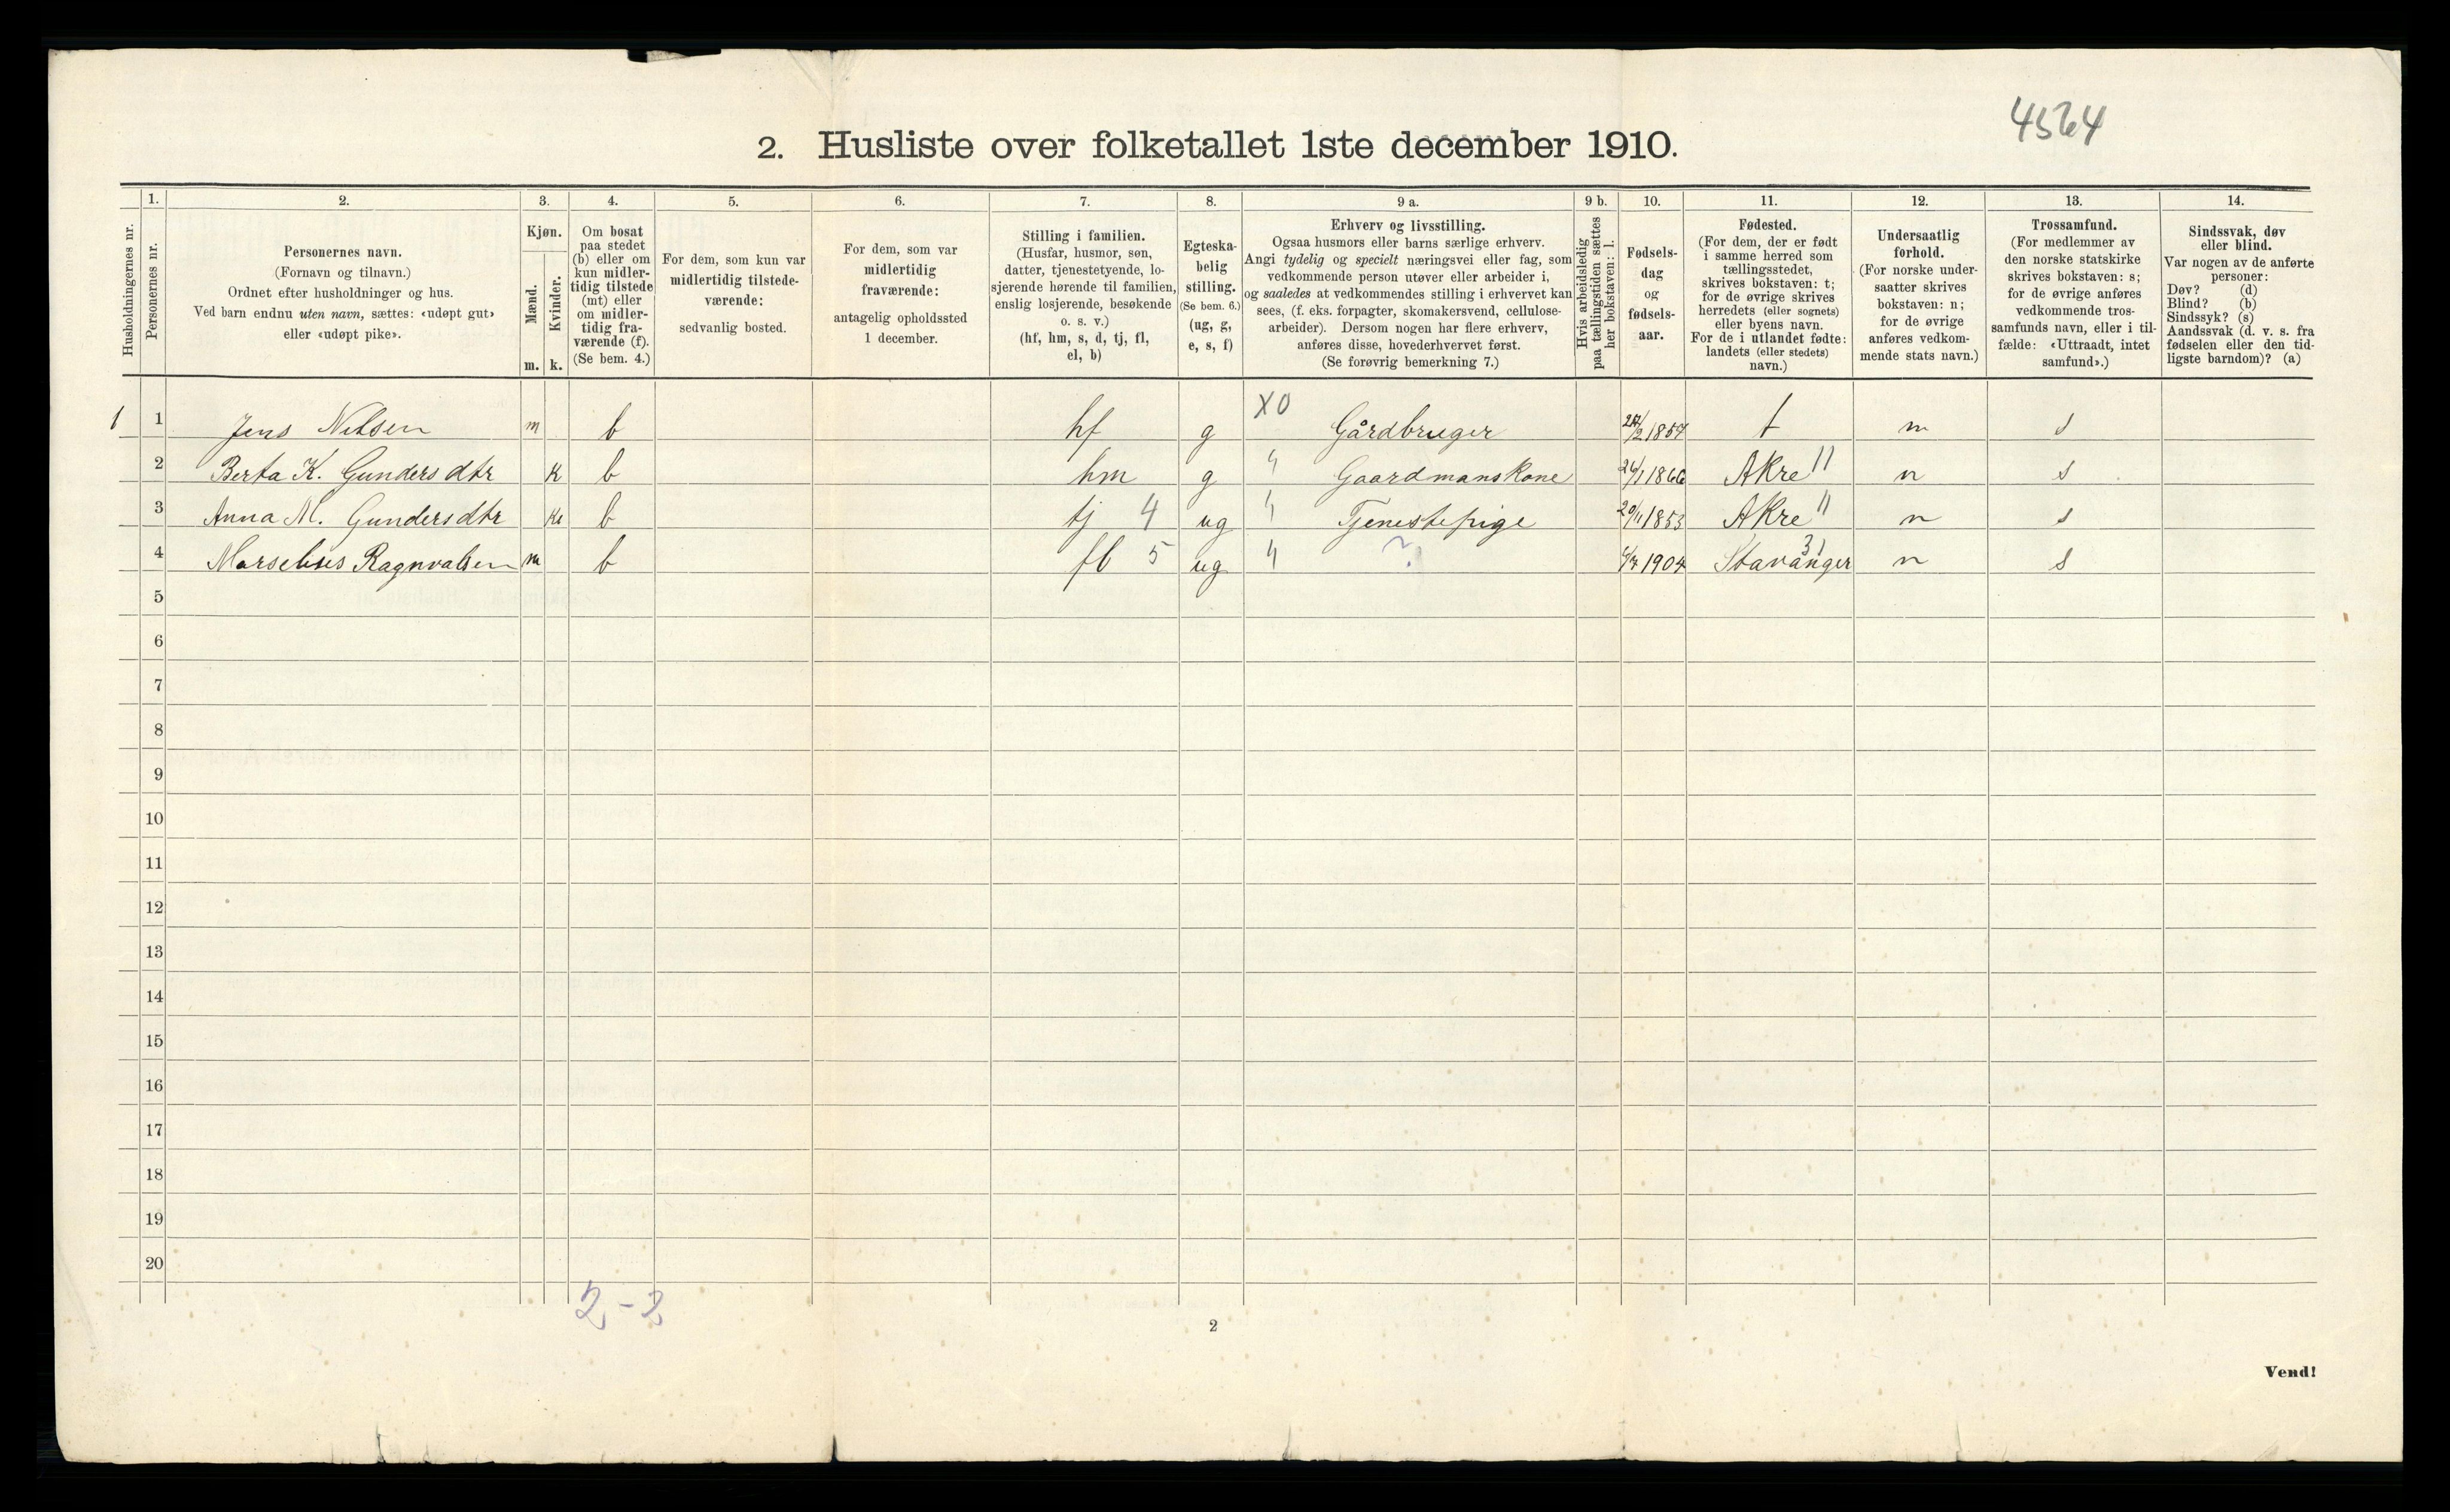 4564
2. Husliste over folketallet 1ste december 1910.
Husholdningernes nr.
1. Personernes nr.
2. Personernes navn.
(Fornavn og tilnavn.)
Ordnet efter husholdninger og hus.
Ved barn endnu uten navn, sættes: «udøpt gut»
eller «udøpt pike».
3. Kjøn.
Mænd. Kvinder.
m. k.
4. Om bosat
paa stedet
(b) eller om
kun midler-
tidig tilstede
(mt) eller
om midler-
tidig fra-
værende (f).
(Se bem. 4.)
5. For dem, som kun var
midlertidig tilstede-
værende:
sedvanlig bosted.
6. For dem, som var
midlertidig
fraværende:
antagelig opholdssted
1 december.
7. Stilling i familien.
(Husfar, husmor, søn,
datter, tjenestetyende, lo-
sjerende hørende til familien,
enslig losjerende, besøkende
o. s. v.)
(hf, hm, s, d, tj, fl,
el, b)
8. Egteska-
belig
stilling.
(Se bem. 6.)
(ug, g,
e, s, f)
9 a. Erhverv og livsstilling.
Ogsaa husmors eller barns særlige erhverv.
Angi tydelig og specielt næringsvei eller fag, som
vedkommende person utøver eller arbeider i,
og saaledes at vedkommendes stilling i erhvervet kan
sees, (f. eks. forpagter, skomakersvend, cellulose-
arbeider). Dersom nogen har flere erhverv,
anføres disse, hovederhvervet først.
(Se forøvrig bemerkning 7.)
9 b. Hvis arbeidsledig
paa tællingstiden sættes
her bokstaven: l.
10. Fødsels-
dag
og
fødsels-
aar.
11. Fødested.
(For dem, der er født
i samme herred som
tællingsstedet,
skrives bokstaven: t;
for de øvrige skrives
herredets (eller sognets)
eller byens navn.
For de i utlandet fødte:
landets (eller stedets)
navn.)
12. Undersaatlig
forhold.
(For norske under-
saatter skrives
bokstaven: n;
for de øvrige
anføres vedkom-
mende stats navn.)
13. Trossamfund.
(For medlemmer av
den norske statskirke
skrives bokstaven: s;
for de øvrige anføres
vedkommende tros-
samfunds navn, eller i til-
fælde: «Uttraadt, intet
samfund».)
14. Sindssvak, døv
eller blind.
Var nogen av de anførte
personer:
Døv? (d)
Blind? (b)
Sindssyk? (s)
Aandssvak (d. v. s. fra
fødselen eller den tid-
ligste barndom)? (a)
1 1 Jens Nilsen m b hf g X0 Gårdbruger 1857 t n s
2 Berta K. Gundersdtr k b hm g " Gaardmanskone 26/1 1866 Akre 11 n s
3 Anna M. Gundersdtr k b tj 4 ug " Tjenestepige 20/11 1853 Akre 11 n s
4 Marselius Ragnvalsen m b fl 5 ug " ? 1904 Stavanger 31 n s
5
6
7
8
9
10
11
12
13
14
15
16
17
18
19
20
2-2
2
Vend!